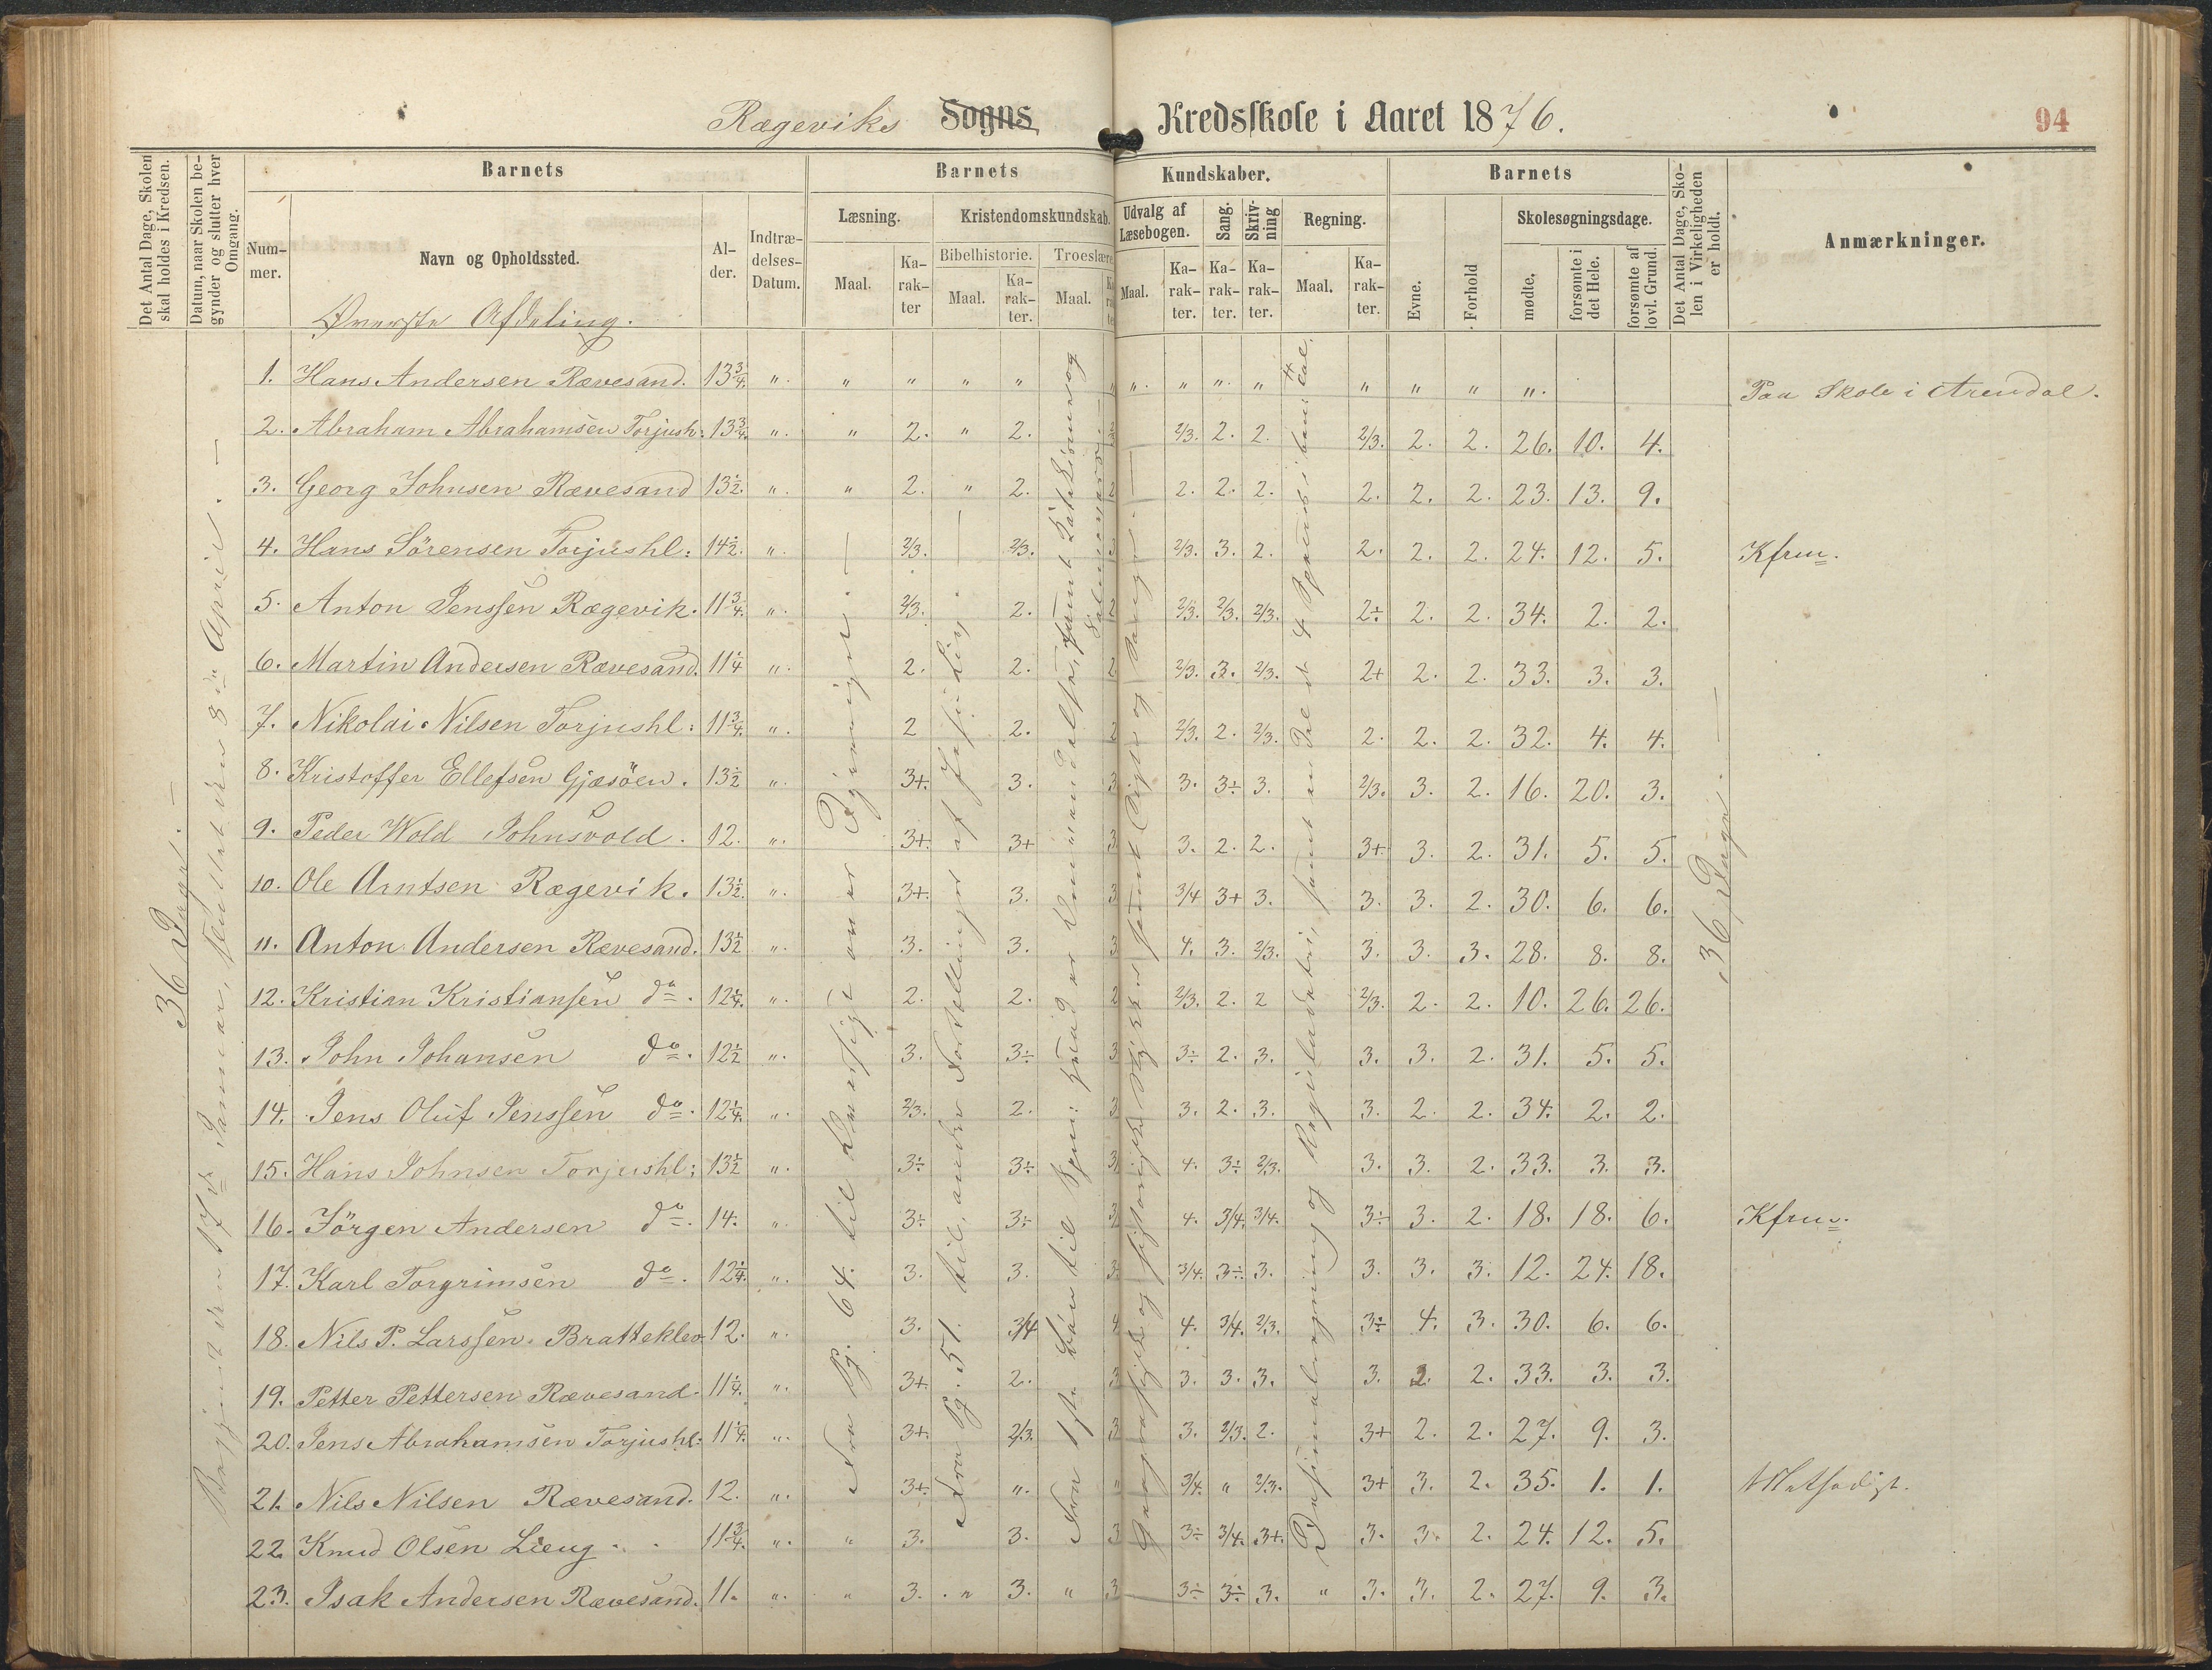 Rægeviks Sogns Kredsskole i Aaret 1876.
94
Det Antal Dage, Skolen skal holdes i Kredsen.
Datum, naar Skolen begynder og slutter hver Omgang.
Barnets
Nummer.
Navn og Opholdssted.
Alder.
Indtrædelses-Datum.
Barnets Kundskaber.
Læsning.
Maal.
Karakter
Kristendomskundskab.
Bibelhistorie.
Maal.
Karakter.
Troeslære
Maal.
Udvalg af Læsebogen.
Maal.
Karakter.
Sang.
Karakter.
Skrivning
Karakter.
Regning.
Maal.
Karakter.
Barnets
Evne.
Forhold
Skolesøgningsdage.
mødte.
forsømte i det Hele.
forsømte af lovl. Grund.
Det Antal Dage, Skolen i Virkeligheden er holdt.
Anmærkninger.
Øverste Afdeling.
36 Dage.
Begyndt den 17de Januar, sluttet den 8de April.
1. Hans Andersen Rævesand. 13 3/4. " " " " " " " " " " " " " " Paa Skole i Arendal.
2. Abraham Abrahamsen Torjush: 13 3/4. " " 2. " 2. 2/3. 2. 2. 2/3. 2. 2. 26. 10. 4.
3. Georg Johnsen Rævesand 13 1/2. " " 2. " 2. 2 2. 2. 2. 2. 2. 2. 23. 13. 9.
4. Hans Sörensen Torjushl: 14 1/2. " 2/3. 2/3. 3 2/3. 3. 2. 2. 2. 2. 24. 12. 5. Kfrm.
5. Anton Jenssen Rægevik. 11 3/4. " 2/3. 2. 2 2/3. 2/3. 2/3. 2÷ 2. 2. 34. 2. 2.
6. Martin Andersen Rævesand. 11 1/4 " 2. 2. 2 2/3. 3. 2/3. 2+ 2. 2. 33. 3. 3.
7. Nikolai Nilsen Torjushl: 11 3/4. " 2 2. 2 2/3. 2. 2/3. 2. 2. 2. 32. 4. 4.
8. Kristoffer Ellefsen Gjæsöen. 13 1/2 " 3+. 3. 3 3. 3÷ 3. 2/3. 3. 2. 16. 20. 3.
9. Peder Wold Johnsvold. 12. " 3+. 3+ 3 3. 2. 2. 3+ 3. 2. 31. 5. 5.
10. Ole Arntsen Rægevik. 13 1/2. " 3+. 3. 3 3/4 3+ 3. 3. 3. 2. 30. 6. 6.
11. Anton Andersen Rævesand. 13 1/2 " 3. 3. 3 4. 3. 2/3. 3. 3. 3. 28. 8. 8.
12. Kristian Kristiansen do. 12 1/4. " 2. 2. 2 2/3. 2. 2 2/3. 2. 2. 10. 26. 26.
13. John Johansen do. 12 1/2 " 3. 3÷ 3 3÷ 2. 3. 3. 3. 2. 31. 5. 5.
14. Jens Oluf Jenssen do. 12 1/4. " 2/3. 2. 3 3. 2. 3. 3. 2. 2. 34. 2. 2.
15. Hans Johnsen Torjushl: 13 1/2 " 3÷ 3÷ 3 4. 3÷ 2/3. 3. 3. 2. 33. 3. 3.
16. Jörgen Andersen do. 14. " 3÷ 3÷ 3 4. 3/4. 3/4. 3÷ 3. 2. 18. 18. 6. Kfrm.
17. Karl Torgrimsen do. 12 1/4. " 3. 3. 3 3/4. 3÷ 3. 3. 3. 3. 12. 24. 18.
18. Nils P. Larssen Bratteklev 12. " 3. 3/4 4 4. 3/4. 2/3. 3÷ 4. 3. 30. 6. 6.
19. Petter Pettersen Rævesand. 11 1/4. " 3+ 2. 3 3. 3. 3. 3. 2. 2. 33. 3. 3.
20. Jens Abrahamsen Torjushl: 11 1/4. " 3+ 2/3. 3 3. 2/3. 2. 3+ 2. 2. 27. 9. 3.
21. Nils Nilsen Rævesand. 12. " 3+ " " 3/4. " 2/3. 3+ 3. 2. 35. 1. 1.
22. Knud Olsen Lieng. 11 3/4. " " 3. 3. 3 3÷ 3/4. 3+. 3. 3. 2. 24. 12. 5.
23. Isak Andersen Rævesand. 11. " " 3. " 3. " 3 3÷ 3÷ 3. " 3. 3. 2. 27. 9. 3.
Fra Pg. 64. til
Fra Pg. 51. til, andre Fortællinger af Jesu Liv.
Fra 1ste Bön til
Decimalregning og Reguladetri, samt
36 Dage.